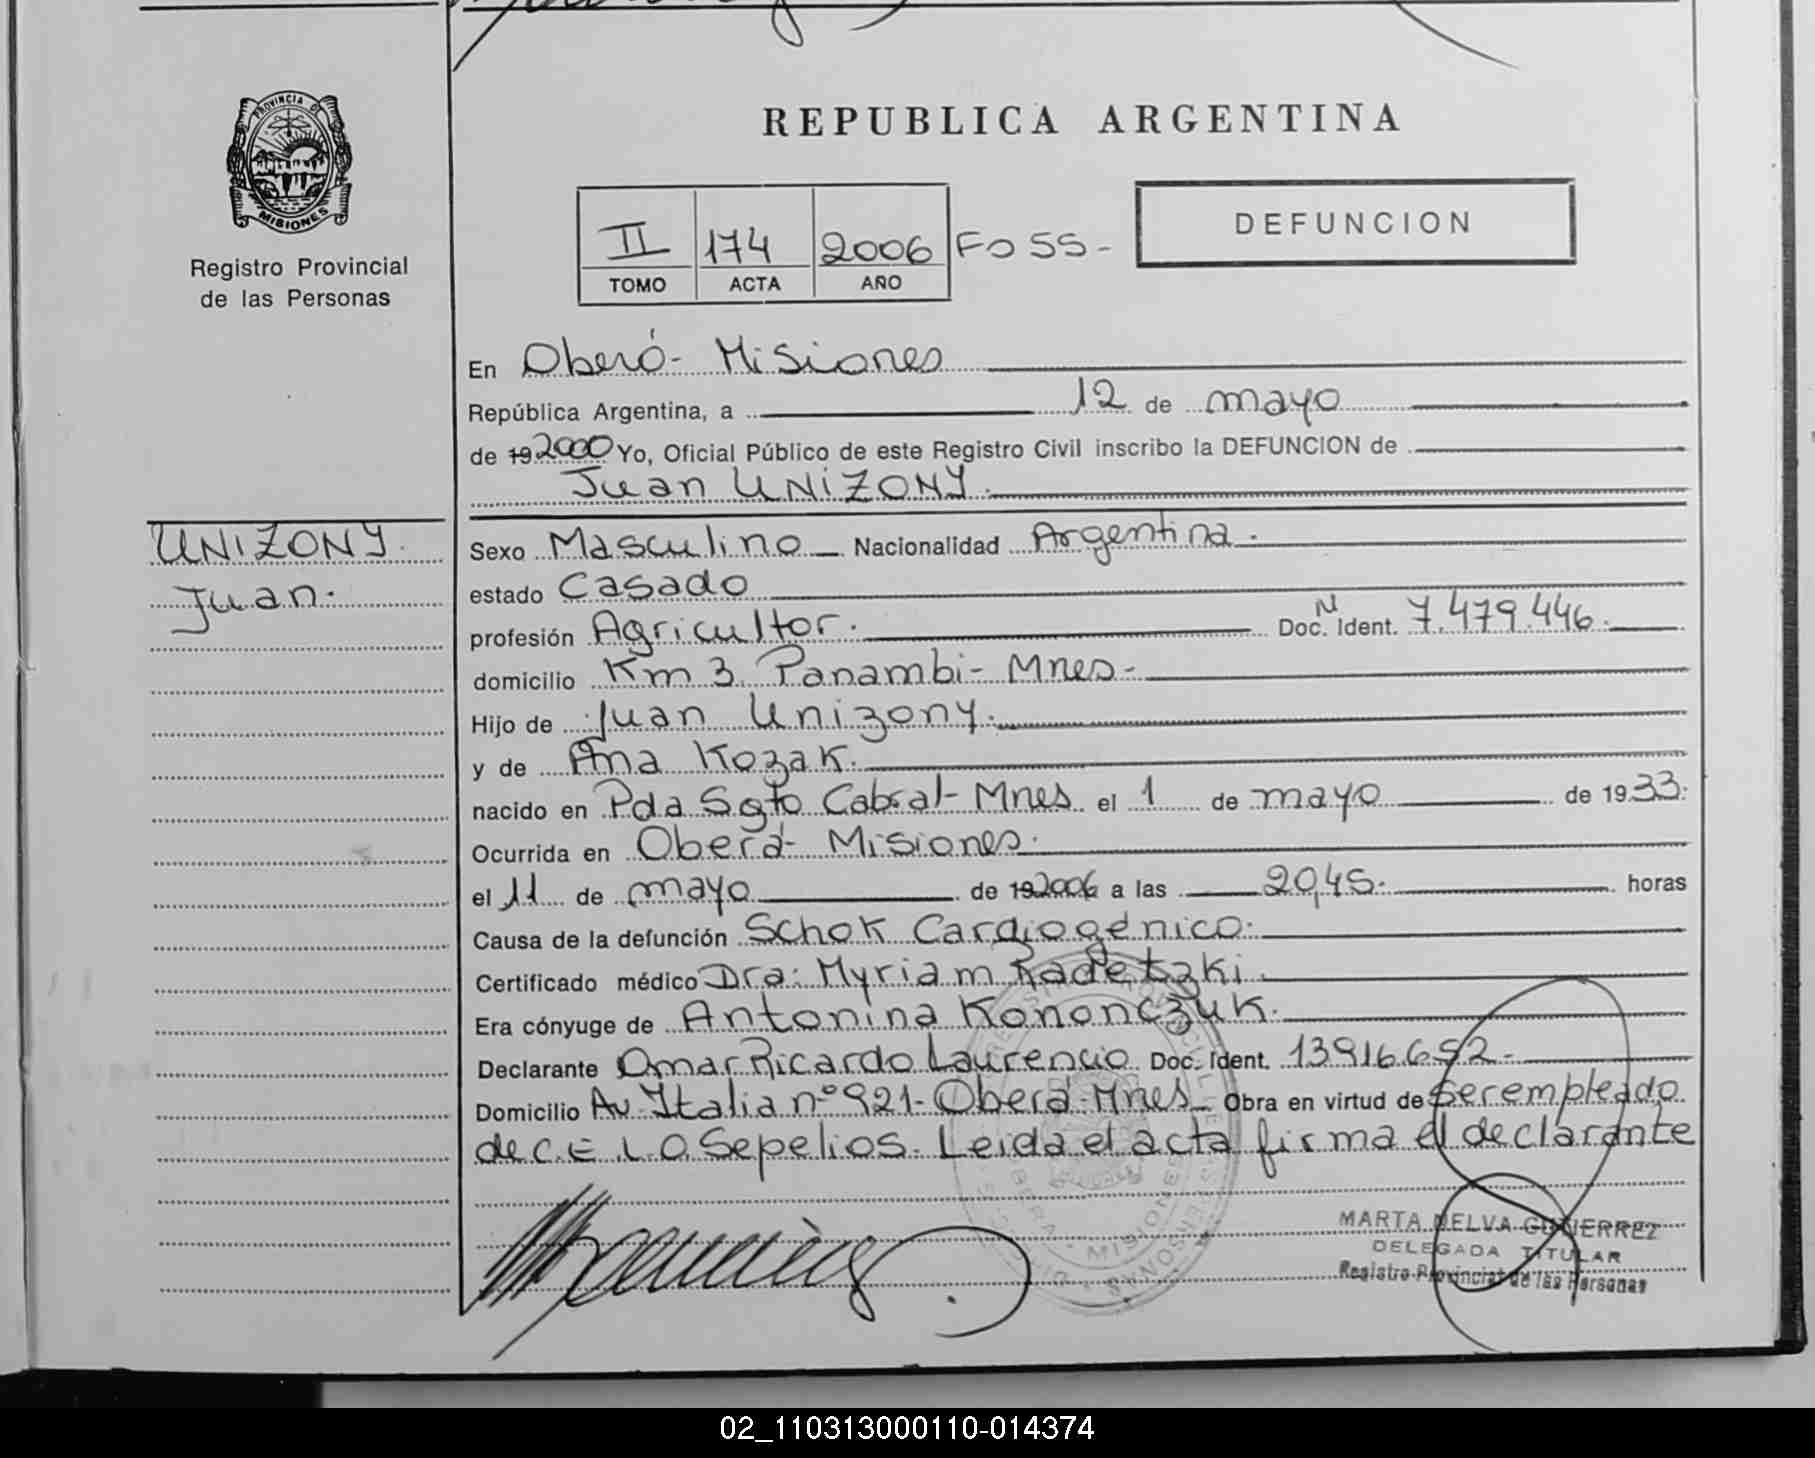 PROVINCIA DE
MISIONES
Registro Provincial
de las Personas
REPUBLICA ARGENTINA
II 174 2006 Fo 55-
TOMO ACTA AÑO
DEFUNCION
En Oberó- Misiones
República Argentina, a 12 de mayo
de 192000 Yo, Oficial Público de este Registro Civil inscribo la DEFUNCION de
Juan UNIZONY.
UNIZONY.
Juan.
Sexo Masculino Nacionalidad Argentina.
estado Casado
profesión Agricultor. Doc. Ident. N 7.479.446.
domicilio Km 3. Panambi- Mnes-
Hijo de Juan Unizony.
y de Ana Kozak.
nacido en Pda Sgto Cabral- Mnes el 1 de mayo de 1933.
Ocurrida en Oberá- Misiones.
el 11 de mayo de 192006 a las 20,45. horas
Causa de la defunción Schok Cardiogénico.
Certificado médico Dra: Myriam Radetzki.
Era cónyuge de Antonina Kononczuk.
Declarante Omar Ricardo Laurencio Doc. Ident. 13916.692-
Domicilio Av. Italia nº 921- Oberá-Mnes- Obra en virtud de Ser empleado
de C.E.L.O. Sepelios. Leida el acta firma el declarante
MARTA NELVA GUTIERREZ
DELEGADA TITULAR
Registro Provincial de las Personas
02_110313000110-014374